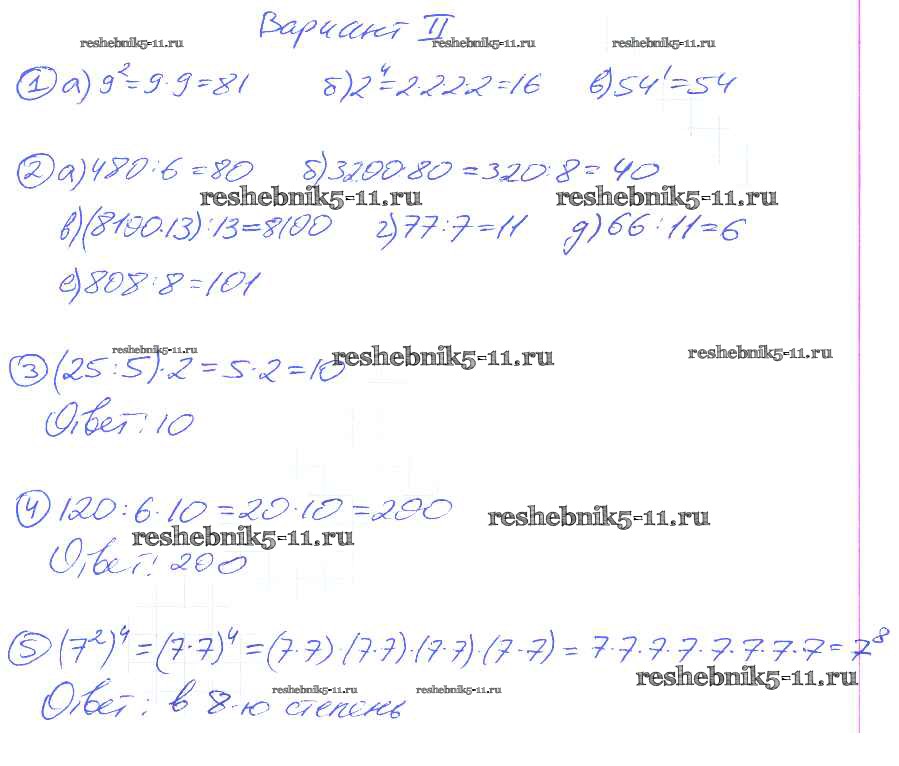 Вариант II
reshebnik5-11.ru reshebnik5-11.ru reshebnik5-11.ru
① а) 9² = 9·9 = 81 б) 2⁴ = 2·2·2·2 = 16 в) 54¹ = 54
② а) 480:6 = 80 б) 3200:80 = 320:8 = 40
reshebnik5-11.ru reshebnik5-11.ru
в) (8100·13):13 = 8100 г) 77:7 = 11 д) 66:11 = 6
е) 808:8 = 101
reshebnik5-11.ru reshebnik5-11.ru reshebnik5-11.ru
③ (25:5)·2 = 5·2 = 10
Ответ: 10
④ 120:6·10 = 20·10 = 200
reshebnik5-11.ru
reshebnik5-11.ru
Ответ: 200
⑤ (7²)⁴ = (7·7)⁴ = (7·7)·(7·7)·(7·7)·(7·7) = 7·7·7·7·7·7·7·7 = 7⁸
reshebnik5-11.ru
reshebnik5-11.ru reshebnik5-11.ru
Ответ: в 8-ю степень